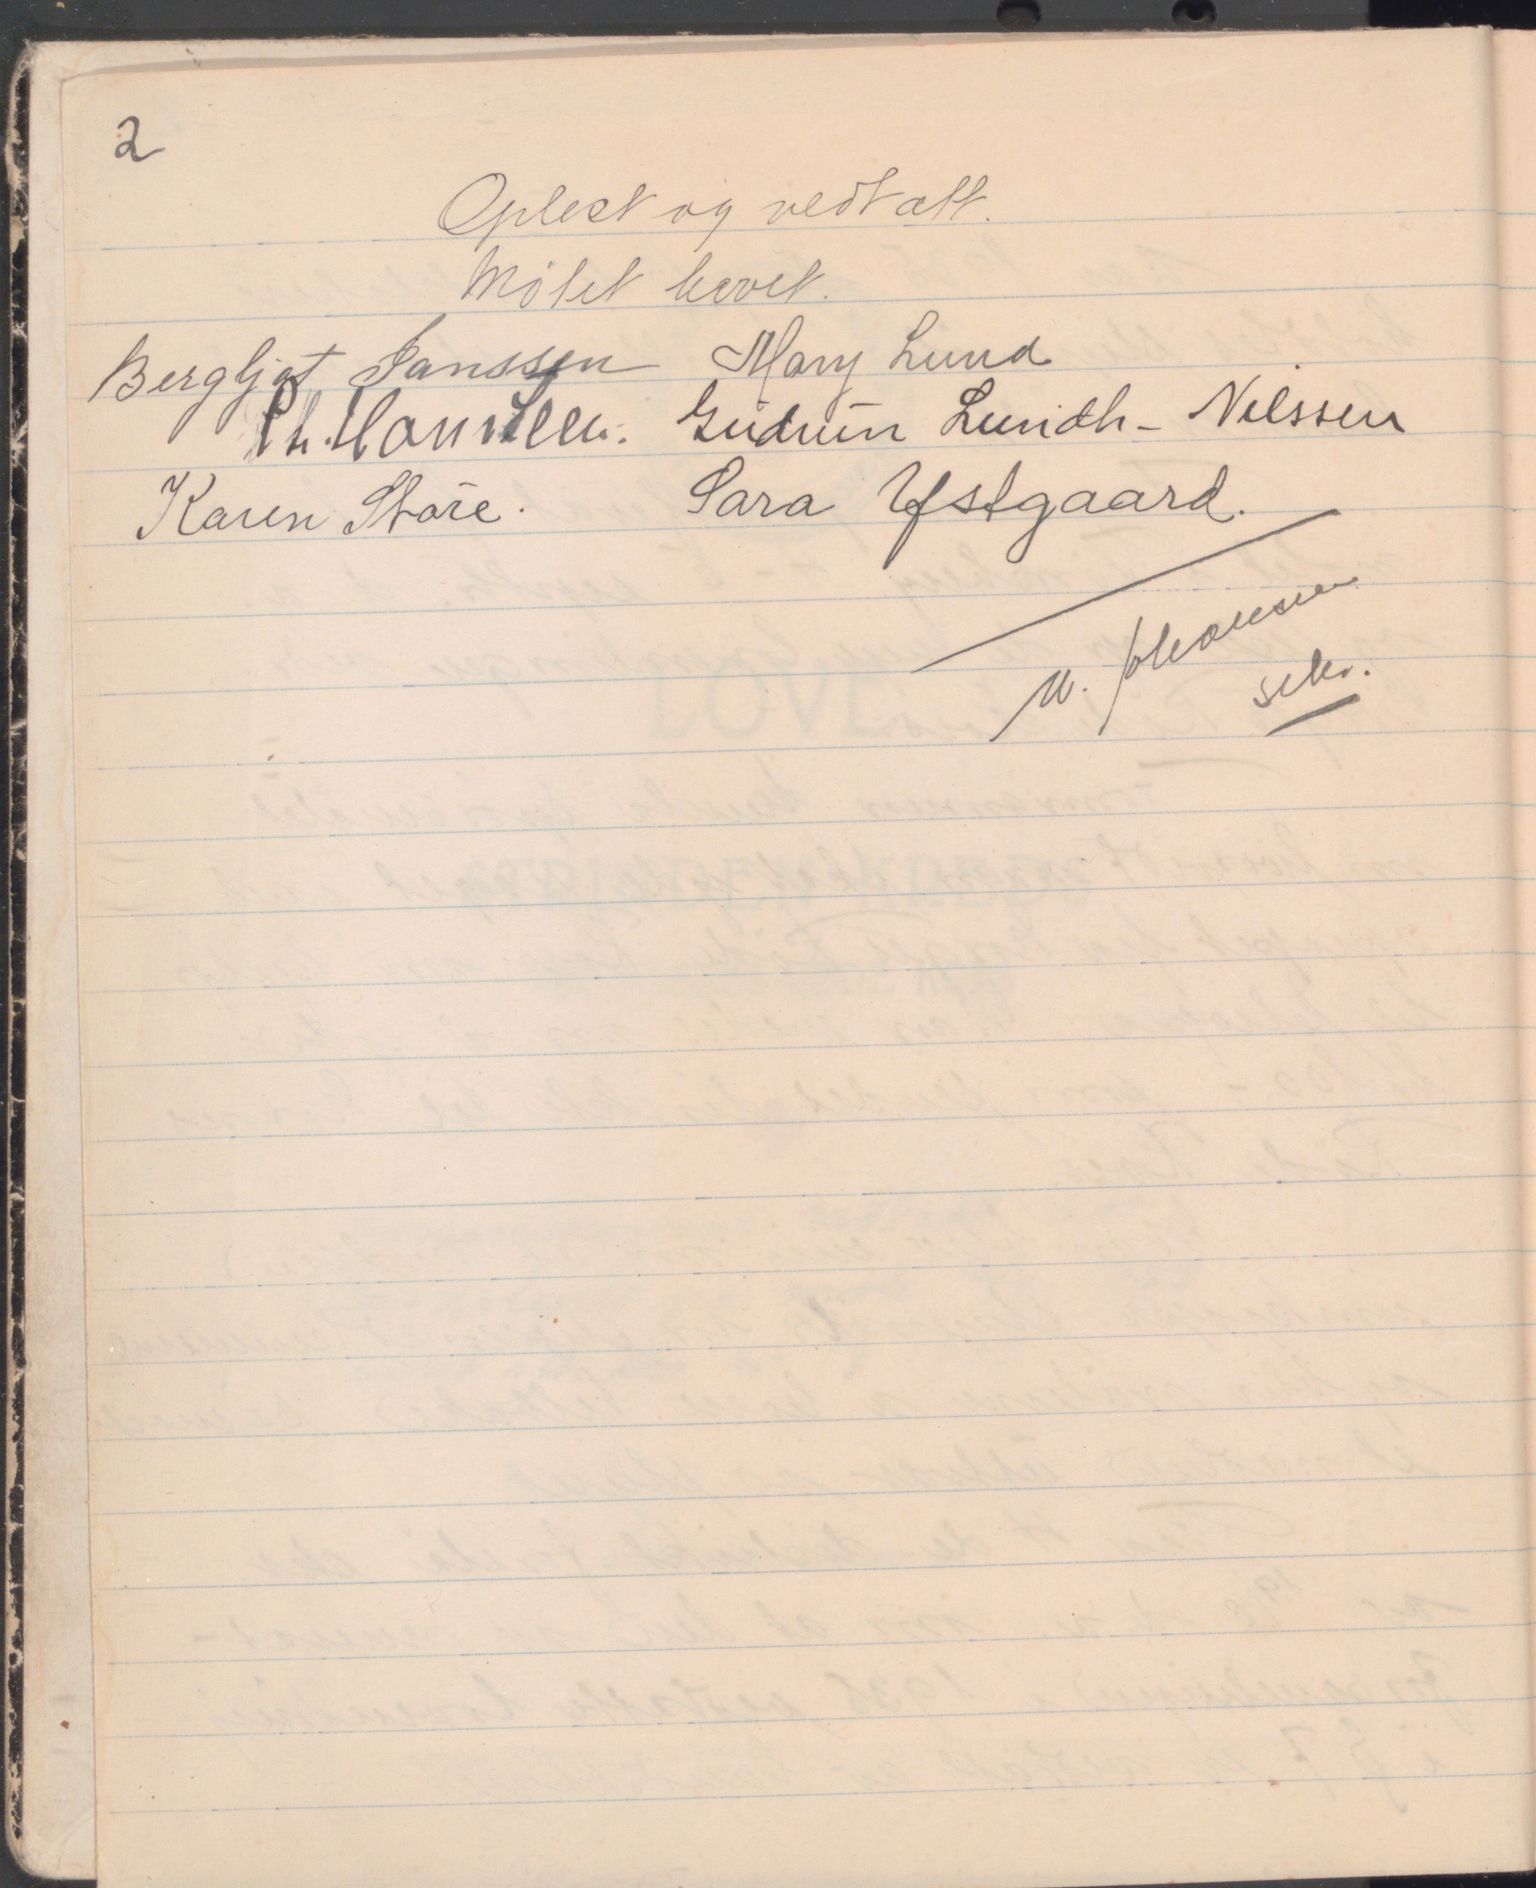 2
Oplest og vedtatt.
Møtet hevet.
Bergljot Janssen Mary Lund
Gudrun Lundh - Nilssen
Karen Støre. Sara Ystgaard.
M. Johansen
sekr.